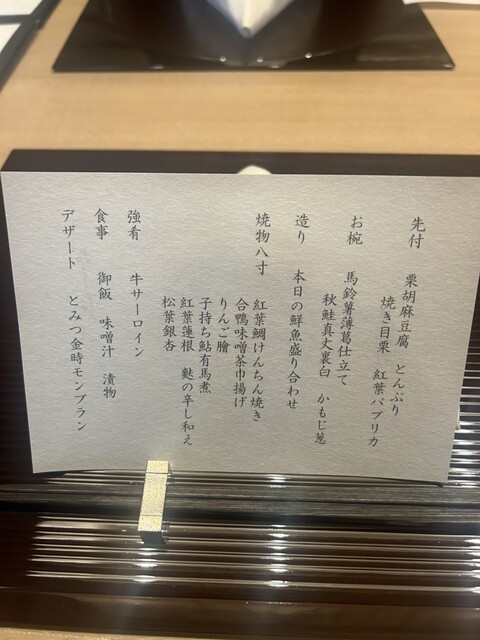 先付　栗胡麻豆腐　とんぶり
焼き目栗　紅葉パプリカ
お椀　馬鈴薯薄葛仕立て
秋鮭真丈裏白　かもじ葱
造り　本日の鮮魚盛り合わせ
焼物八寸　紅葉鯛けんちん焼き
合鴨味噌茶巾揚げ
りんご膾
子持ち鮎有馬煮
紅葉蓮根　麩の辛し和え
松葉銀杏
強肴　牛サーロイン
食事　御飯　味噌汁　漬物
デザート　とみつ金時モンブラン